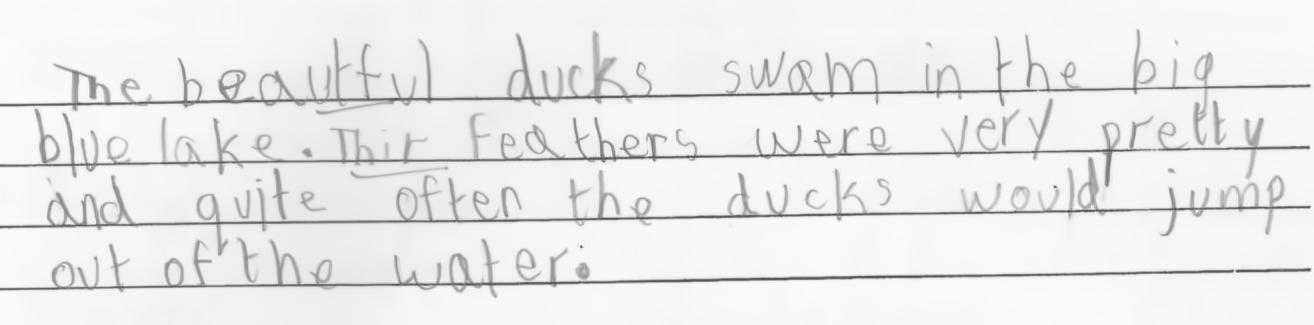 The beautful ducks swam in the big
blue lake. Thir feathers were very pretty
and quite often the ducks would jump
out of the water.